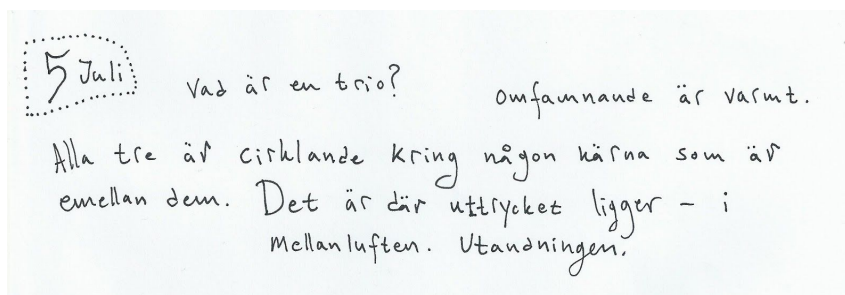 5 Juli
Vad är en trio? Omfamnande är varmt.
Alla tre är cirklande kring någon kärna som är
emellan dem. Det är där uttrycket ligger – i
mellanluften. Utandningen.